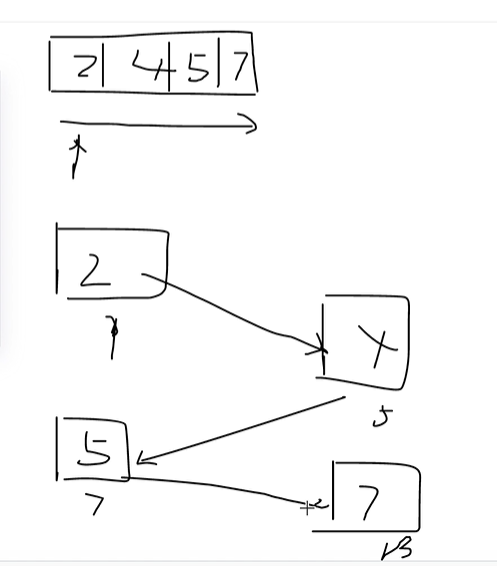 2 4 5 7
2
4
5
5
7
7
13